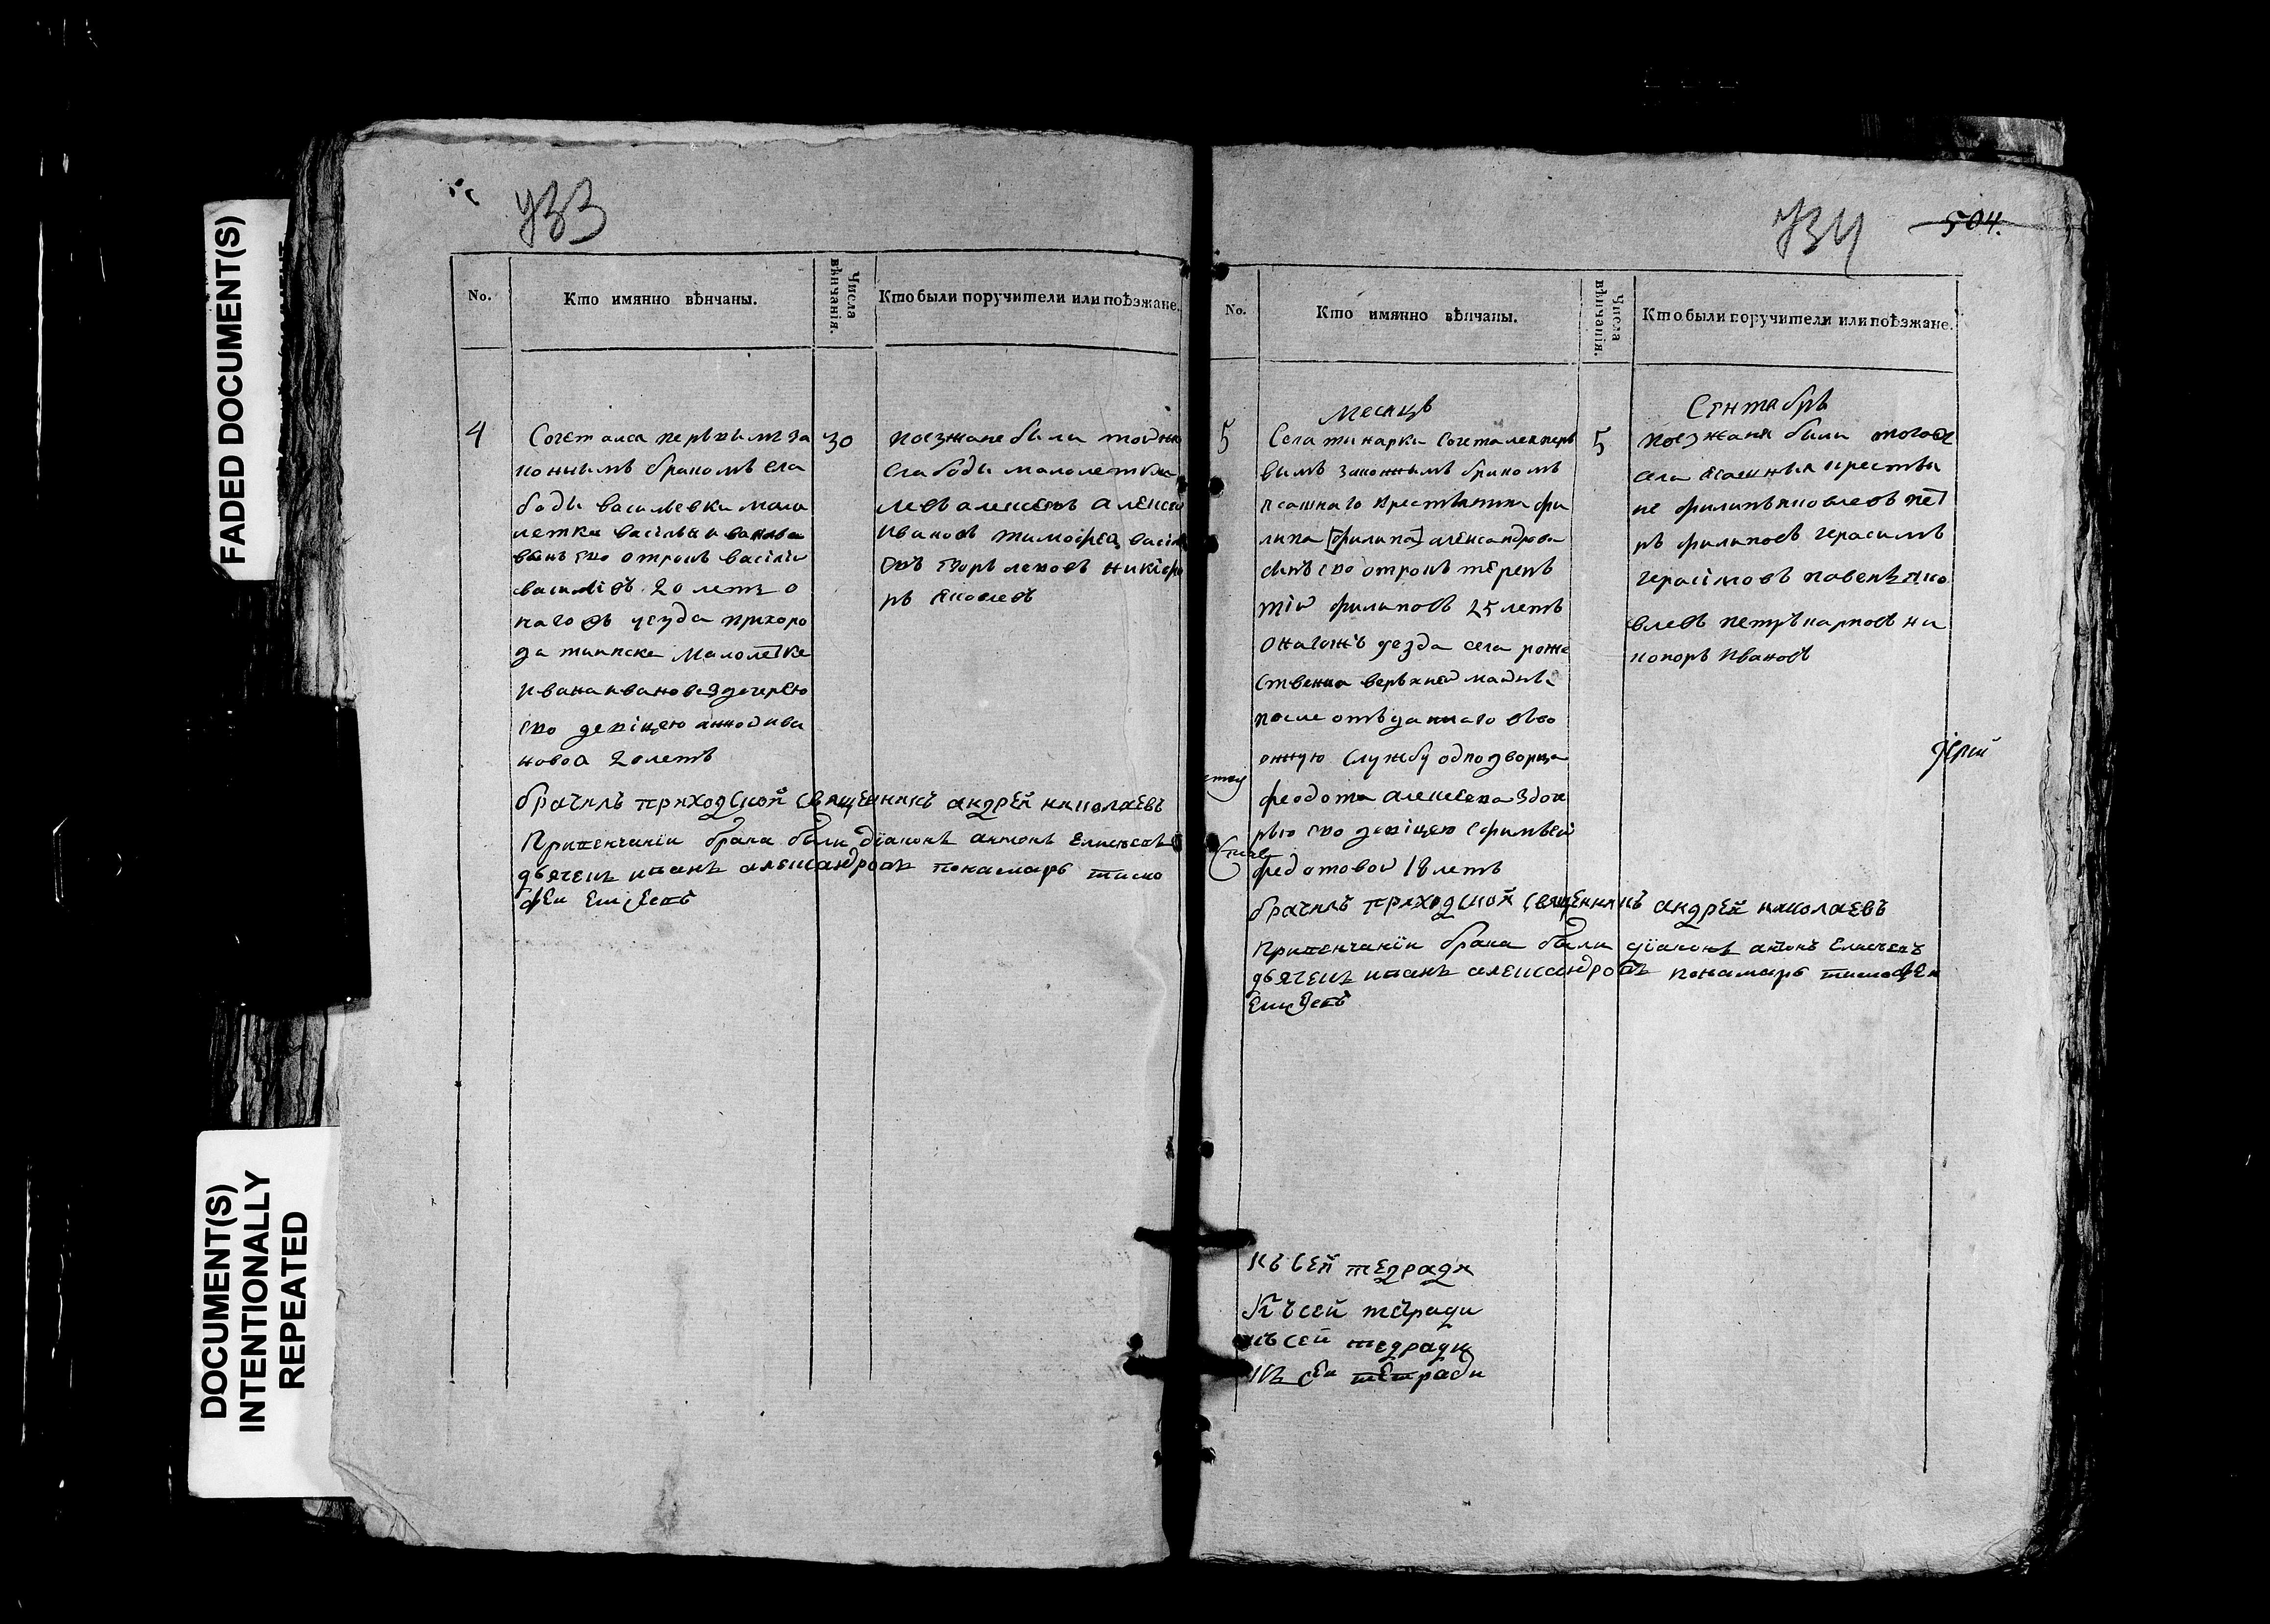 FADED DOCUMENT(S)
DOCUMENT(S)
INTENTIONALLY
REPEATED
733
No.
Кто имянно вѣнчаны.
Числа
вѣнчанія.
Кто были поручители или поѣзжане.
4
30
Сочетался первымъ за
коннымъ бракомъ сла
боды василевки мала
летки василья
сынъ ево отрокъ василій
василіевъ 20 летъ о
наго въ уезда пригоро
да малолетке
ивана иванова здочерею
ево девіцею анной ива
новоа 20 летъ
поезжане были той же
слабоды малолетки
левъ алексеевъ алексей
ивановъ тимофей васил
евъ никіфо
ръ яковлевъ
брачилъ приходской священникъ андрей николаевъ
Привенчаніи брака были діаконъ антонъ Елисеевъ
дьячекъ иванъ александровъ понамарь тимо
фей Елисеевъ
734
504.
No.
Кто имянно вѣнчаны.
Числа
вѣнчанія.
Кто были поручители или поѣзжане.
месяцъ
Сентябръ
5
5
Села тинарки сочетался перъ
вымъ законнымъ бракомъ
ясашнаго крестьянина фи
липа [филипа] александрова
сынъ ево отрокъ терень
тій филиповъ 25 летъ
онагожъ уезда села роже
ствена верхней майны
после отъданнаго въво
енную службу однодворца
феодота алексеева здоче
рью ево девіцею ефимьей
федотовой 18 летъ
поезжаня были тогоже
села ясашныя крестья
не филипъ яковлевъ пет
ръ филиповъ герасимъ
герасімовъ яко
влевъ петръ карповъ ни
коноръ ивановъ
Іерей
брачилъ приходской священникъ андрей николаевъ
Привенчаніи брака были діаконъ антонъ Елисеевъ
дьячекъ иванъ александровъ понамарь тимофей
Елисеевъ
къ сей тедради
Къ сей тетради
къ сей тедради
Къ сей тетради